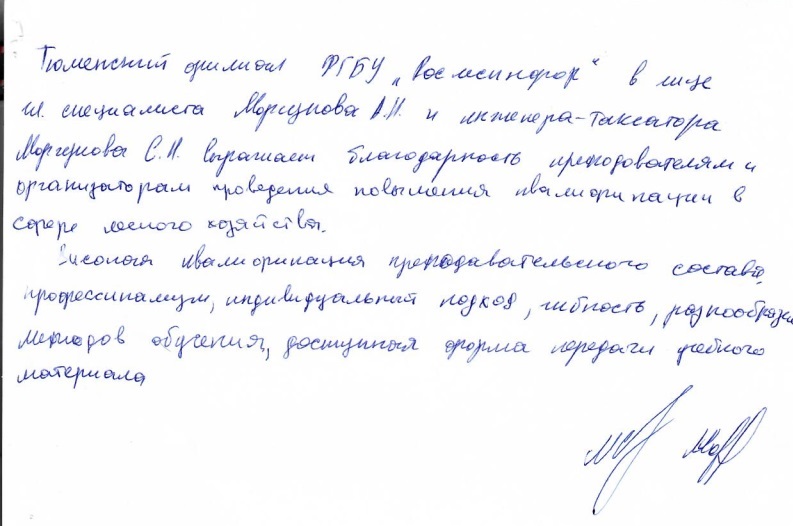 Тюменский филиал ФГБУ „Рослесинфорг" в лице
гл. специалиста Моргунова А.Н. и инженера-таксатора
Моргунова С.Н. выражает благодарность преподователям и
организаторам проведения повышения квалификации в
сфере лесного хозяйства.
Высокая квалификация преподавательского состава,
профессинализм, индивидуальный подход, гибкость, разнообразие
методов обучения, доступная форма передачи учебного
материала